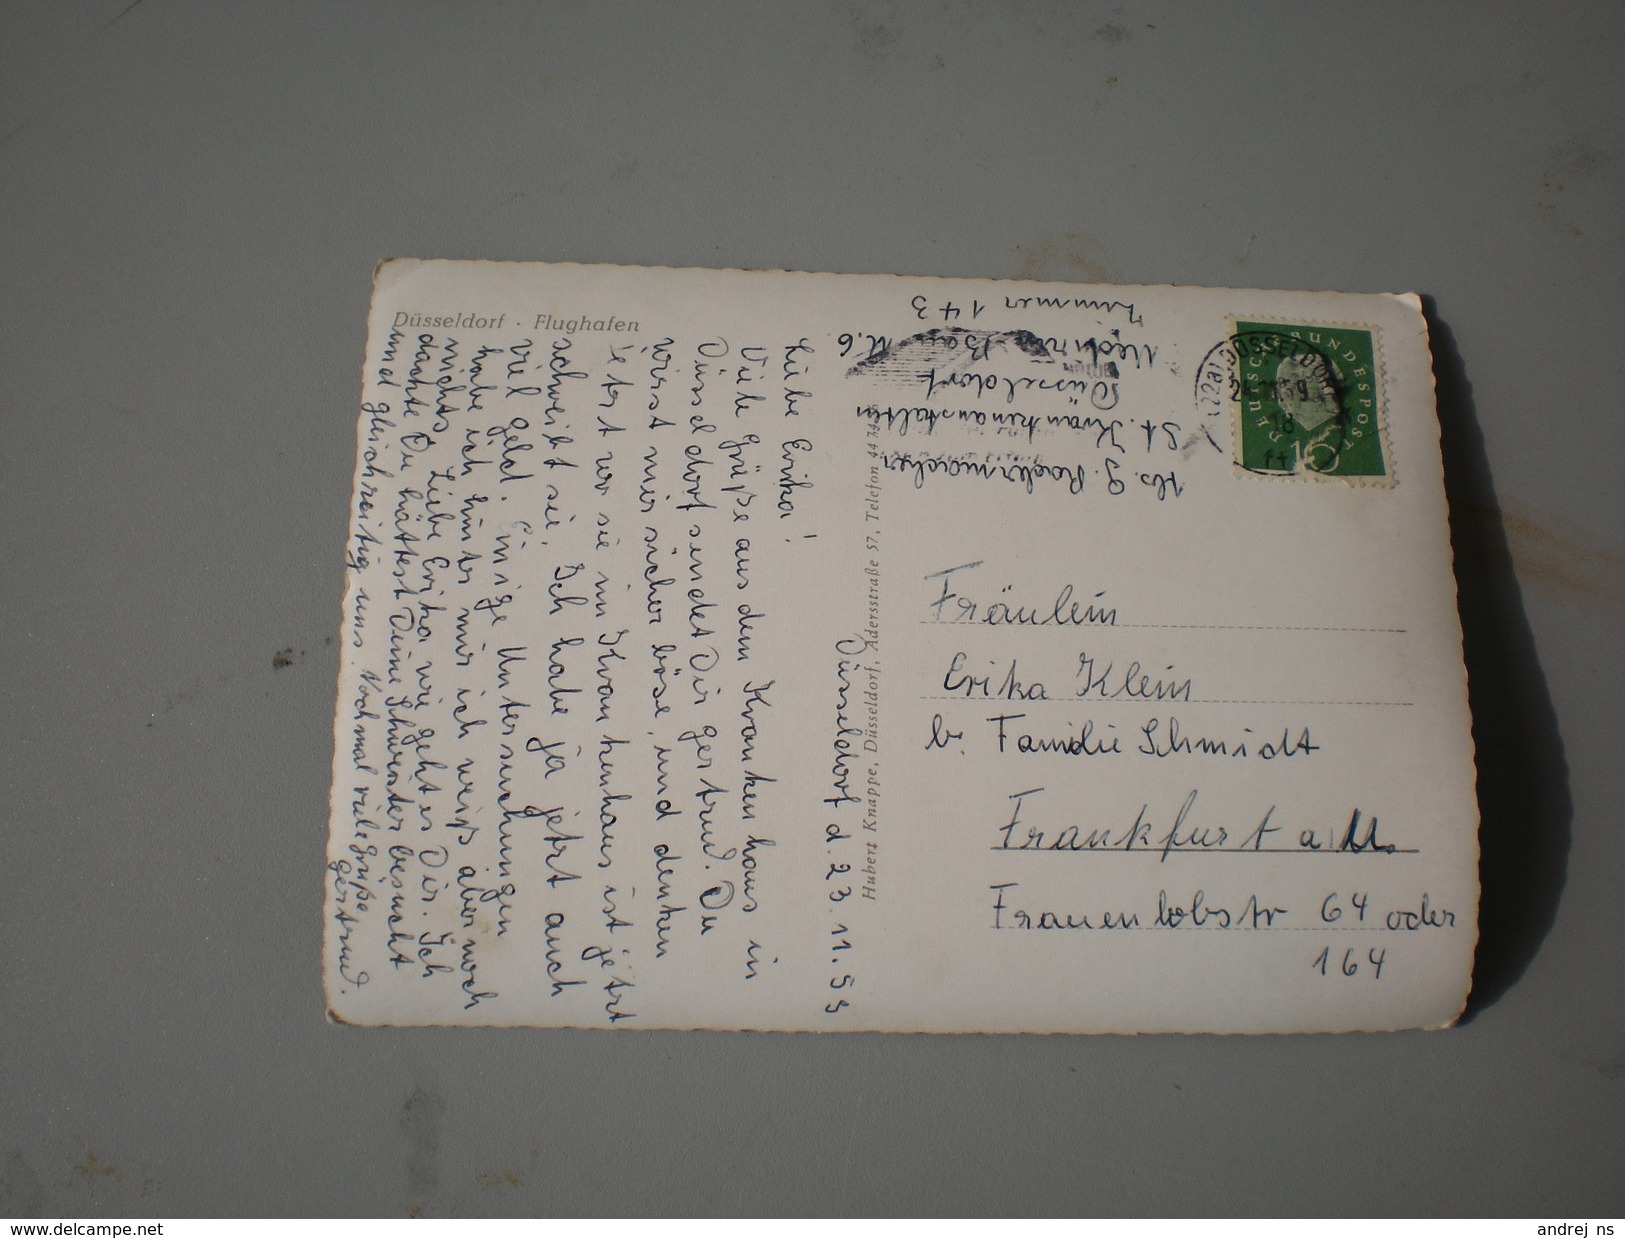 Düsseldorf · Flughafen
Düsseldorf d. 23. 11. 59
Liebe Erika!
Viele Grüße aus dem Krankenhaus in
Düsseldorf sendet Dir Gertrud. Du
wirst mir sicher böse, und denken
jetzt wo sie im Krankenhaus ist jetzt
schreibt sie. Ich habe ja jetzt auch
viel Geld. Einige Untersuchungen
habe ich hinter mir ich weiß aber noch
nichts. Liebe Erika wie geht es Dir. Ich
dachte Du hättest Deine Schwester besucht
und gleichzeitig uns. Nochmal viele Grüße
Gertrud.
Hubert Knappe, Düsseldorf, Adersstraße 57, Telefon
Abs. G. Radermacher
St. Krankenanstalten
Düsseldorf
Zimmer 143
DEUTSCHE BUNDESPOST
10
(22a) DÜSSELDORF
59
18
ft
Fräulein
Erika Klein
b. Familie Schmidt
Frankfurt a/M.
Frauenlobstr 64 oder
164
www.delcampe.net
andrej_ns